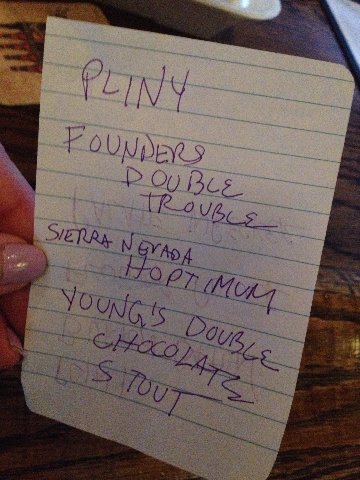 PLINY
FOUNDERS
DOUBLE
TROUBLE
SIERRA NEVADA
HOPTIMUM
YOUNG'S DOUBLE
CHOCOLATE
STOUT